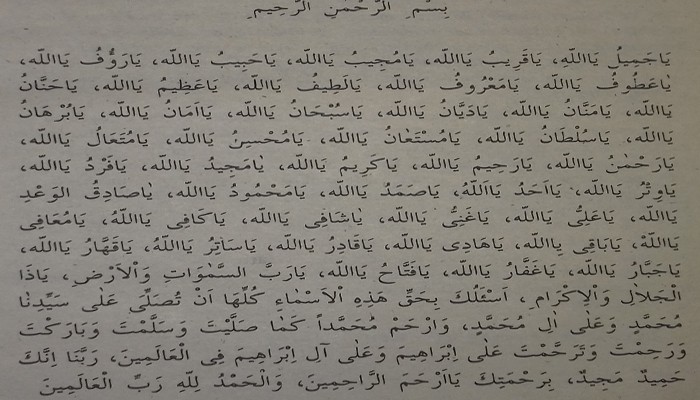 بِسْمِ الرَّحْمٰنِ الرَّحِيمِ
يَاجَمِيلُ يَااَللّٰهِ، يَاقَرِيبُ يَااللّٰه، يَامُجِيبُ يَااللّٰه، يَاحَبِيبُ يَااللّٰه، يَارَؤُفُ يَااللّٰه،
يَاعَطُوفُ يَااللّٰه، يَامَعْرُوفُ يَااللّٰه، يَالَطِيفُ يَااللّٰه، يَاعَظِيمُ يَااللّٰه، يَاحَنَّانُ
يَااللّٰه، يَامَنَّانُ يَااللّٰه، يَادَيَّانُ يَااللّٰه، يَاسُبْحَانُ يَااللّٰه، يَااَمَانُ يَااللّٰه، يَابُرْهَانُ
يَااللّٰه، يَاسُلْطَانُ يَااللّٰه، يَامُسْتَعَانُ يَااللّٰه، يَامُحْسِنُ يَااللّٰه، يَامُتَعَالُ يَااللّٰه،
يَارَحْمٰنُ يَااللّٰه، يَارَحِيمُ يَااللّٰه، يَاكَرِيمُ يَااللّٰه، يَامَجِيدُ يَااللّٰه، يَافَرْدُ يَااللّٰه،
يَاوِتْرُ يَااللّٰه، يَااَحَدُ يَااَللّٰهُ، يَاصَمَدُ يَااللّٰه، يَامَحْمُودُ يَااللّٰه، يَاصَادِقُ الوَعْدِ
يَااللّٰه، يَاعَلِىُّ يَااللّٰه، يَاغَنِىُّ يَااللّٰه، يَاشَافِى يَااللّٰه، يَاكَافِى يَااللّٰهُ، يَامُعَافِى
يَااللّٰهْ، يَابَاقِى يِااللّٰه، يَاهَادِى يَااللّٰه، يَاقَادِرُ يَااللّٰه، يَاسَاتِرُ يَااللّٰهُ، يَاقَهَّارُ يَااللّٰه،
يَاجَبَّارُ يَااللّٰه، يَاغَفَّارُ يَااللّٰه، يَافَتَّاحُ يَااللّٰه، يَارَبَّ السَّمٰوَاتِ وَالْاَرْضِ، يَاذَا
الْجَلَالِ وَالْاِكْرَامِ، اَسْئَلُكَ بِحَقِّ هٰذِهِ الْاَسْمَاءِ كُلِّهَا اَنْ تُصَلِّىَ عَلٰى سَيِّدِنَا
مُحَمَّدٍ وَعَلٰى اٰلِ مُحَمَّدٍ، وَارْحَمْ مُحَمَّداً كَمَا صَلَّيْتَ وَسَلَّمْتَ وَبَارَكْتَ
وَرَحِمْتَ وَتَرَحَّمْتَ عَلٰى اِبْرَاهِيمَ وَعَلٰى آلِ اِبْرَاهِيمَ فِى الْعَالَمِينَ، رَبَّنَا اِنَّكَ
حَمِيدٌ مَجِيدٌ، بِرَحْمَتِكَ يَااَرْحَمَ الرَّاحِمِينَ، وَالْحَمْدُ لِلّٰهِ رَبِّ الْعَالَمِينَ